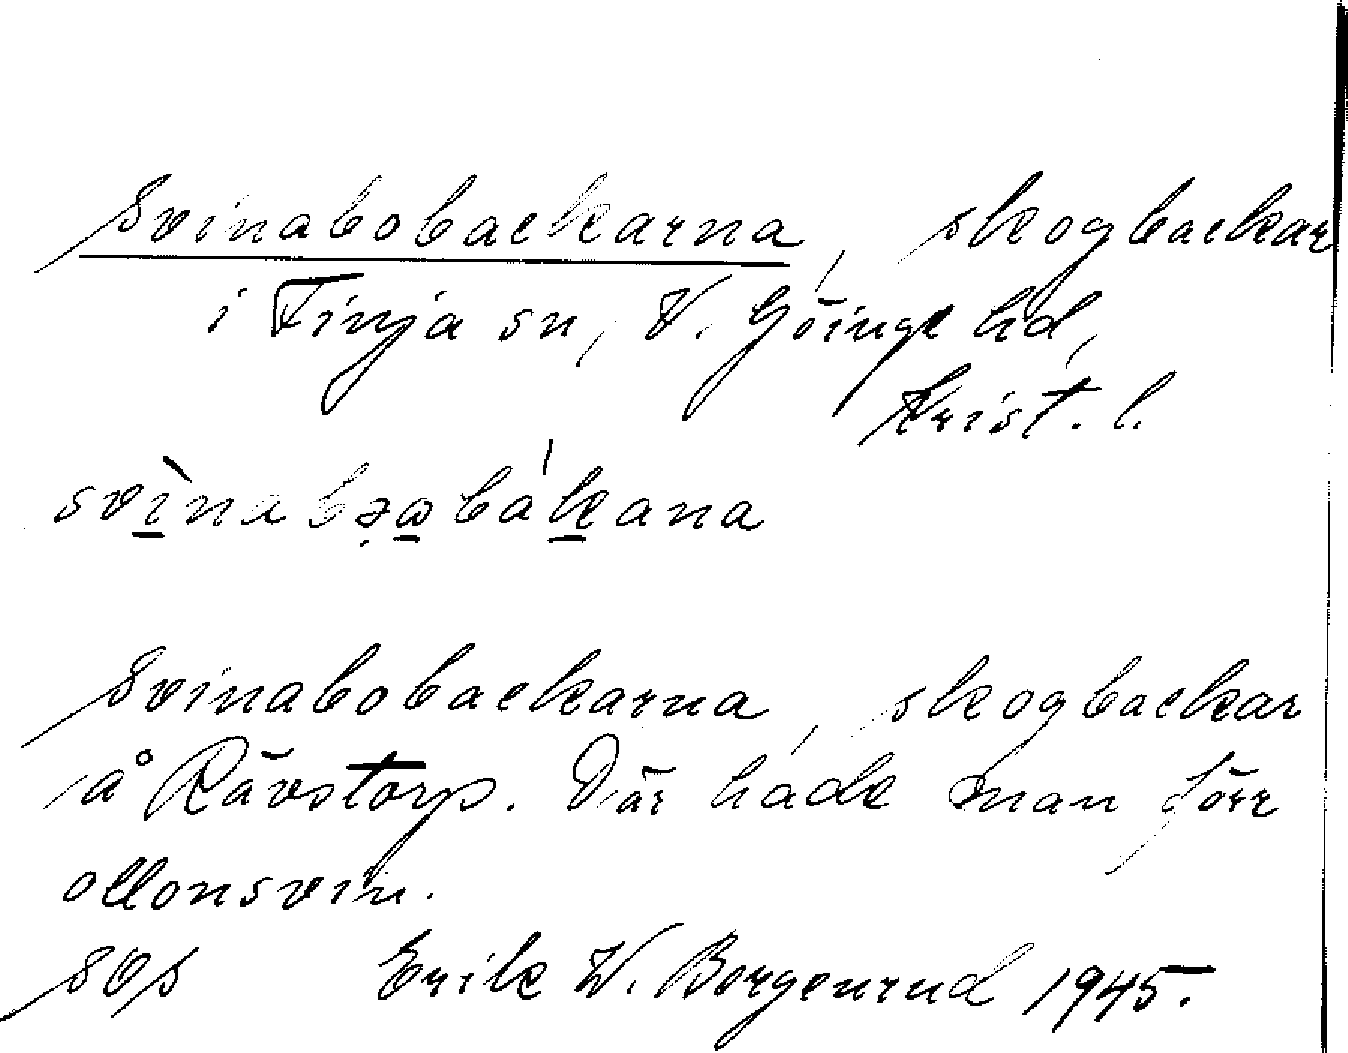 Svinabobackarna, skogbackar
i Finja sn, V. Göinge hd,
Krist. l.
Svinabobackarna, skogbackar
å Rävstorp. Där hade man förr
ollonsvin.
Erik W. Borgenrud 1945.